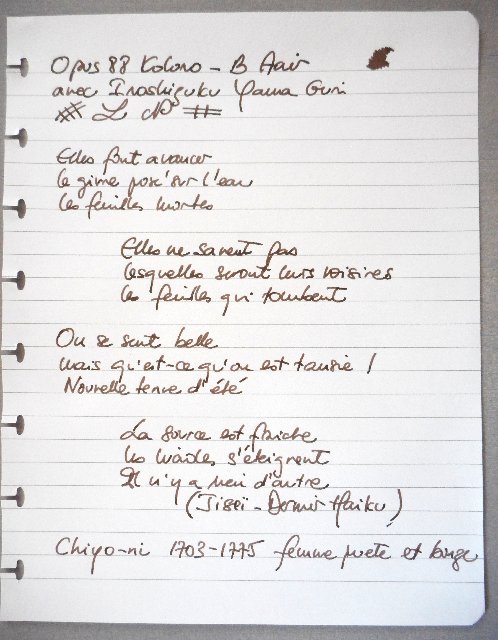 Opus 88 Koloro - B Fair
avec Iroshizuku Yama Guri
L N°
Elles font avancer
le givre posé sur l'eau
les feuilles mortes
Elles ne savent pas
lesquelles seront leurs voisines
les feuilles qui tombent
On se sent belle
mais qu'est-ce qu'on est transie !
Nouvelle tenue d'été
La source est fraîche
les lucioles s'éteignent
Il n'y a rien d'autre
(Jiseï - Dernier Haïku)
Chiyo-ni 1703-1775 femme poète et bonze